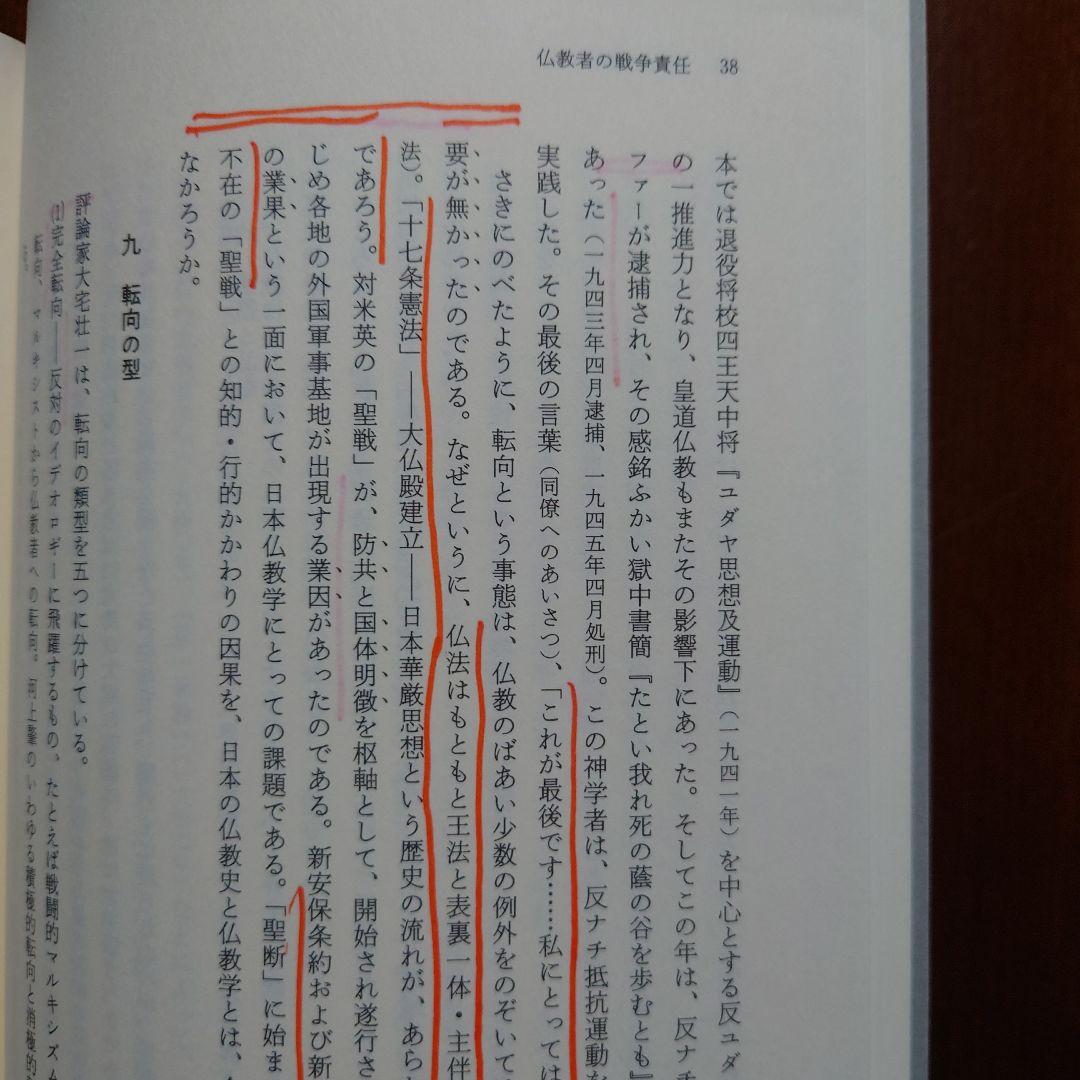 仏教者の戦争責任 38
本では退役将校四王天中将『ユダヤ思想及運動』（一九四一年）を中心とする反ユダ
の一推進力となり、皇道仏教もまたその影響下にあった。そしてこの年は、反ナチ
ファーが逮捕され、その感銘ふかい獄中書簡『たとい我れ死の蔭の谷を歩むとも』
あった（一九四三年四月逮捕、一九四五年四月処刑）。この神学者は、反ナチ抵抗運動を
実践した。その最後の言葉（同僚へのあいさつ）、「これが最後です……私にとっては
さきにのべたように、転向という事態は、仏教のばあい少数の例外をのぞいて
要が無かったのである。なぜというに、仏法はもともと王法と表裏一体・主伴
法）。「十七条憲法」――大仏殿建立――日本華厳思想という歴史の流れが、あら
であろう。対米英の「聖戦」が、防共と国体明徴を枢軸として、開始され遂行さ
じめ各地の外国軍事基地が出現する業因があったのである。新安保条約および新
の業果という一面において、日本仏教学にとっての課題である。「聖断」に始ま
不在の「聖戦」との知的・行的かかわりの因果を、日本の仏教史と仏教学とは、
なかろうか。
九 転向の型
評論家大宅壮一は、転向の類型を五つに分けている。
(1)完全転向――反対のイデオロギーに飛躍するもの、たとえば戦闘的マルキシズム
転向、マルキシストから仏教者への転向。河上肇のいわゆる積極的転向と消極的